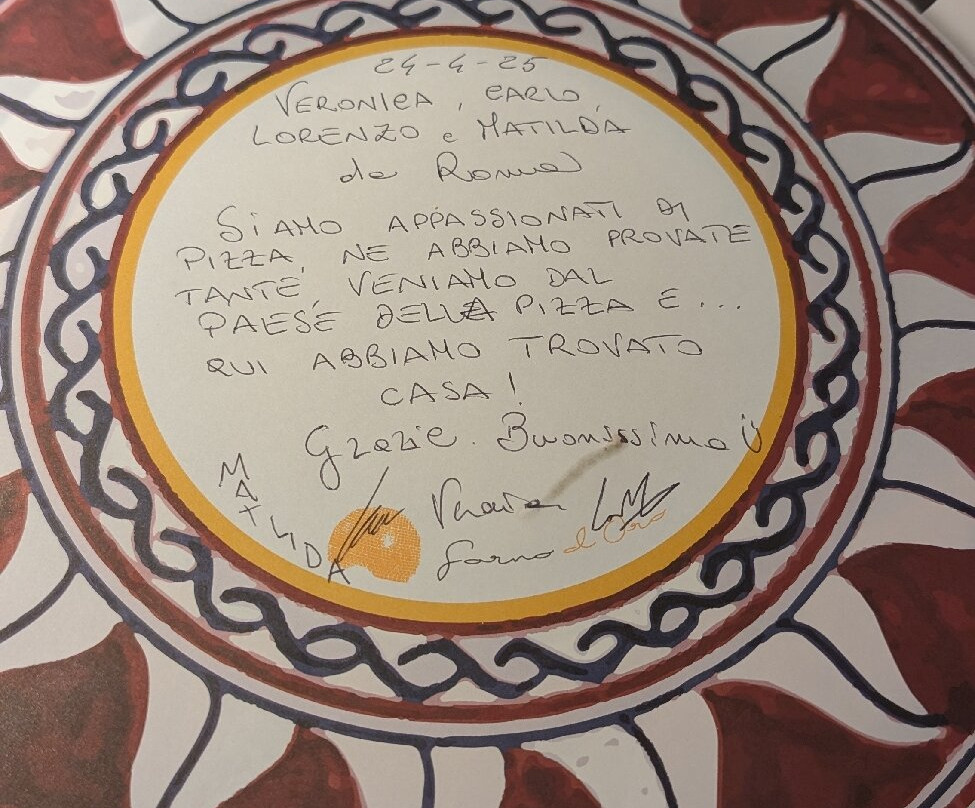 24-4-25
VERONICA, CARLO,
LORENZO e MATILDA
da Roma
SIAMO APPASSIONATI DI
PIZZA, NE ABBIAMO PROVATE
TANTE, VENIAMO DAL
PAESE DELLA PIZZA E ...
QUI ABBIAMO TROVATO
CASA!
Grazie. Buonissima
MATILDA
forno d'Oro